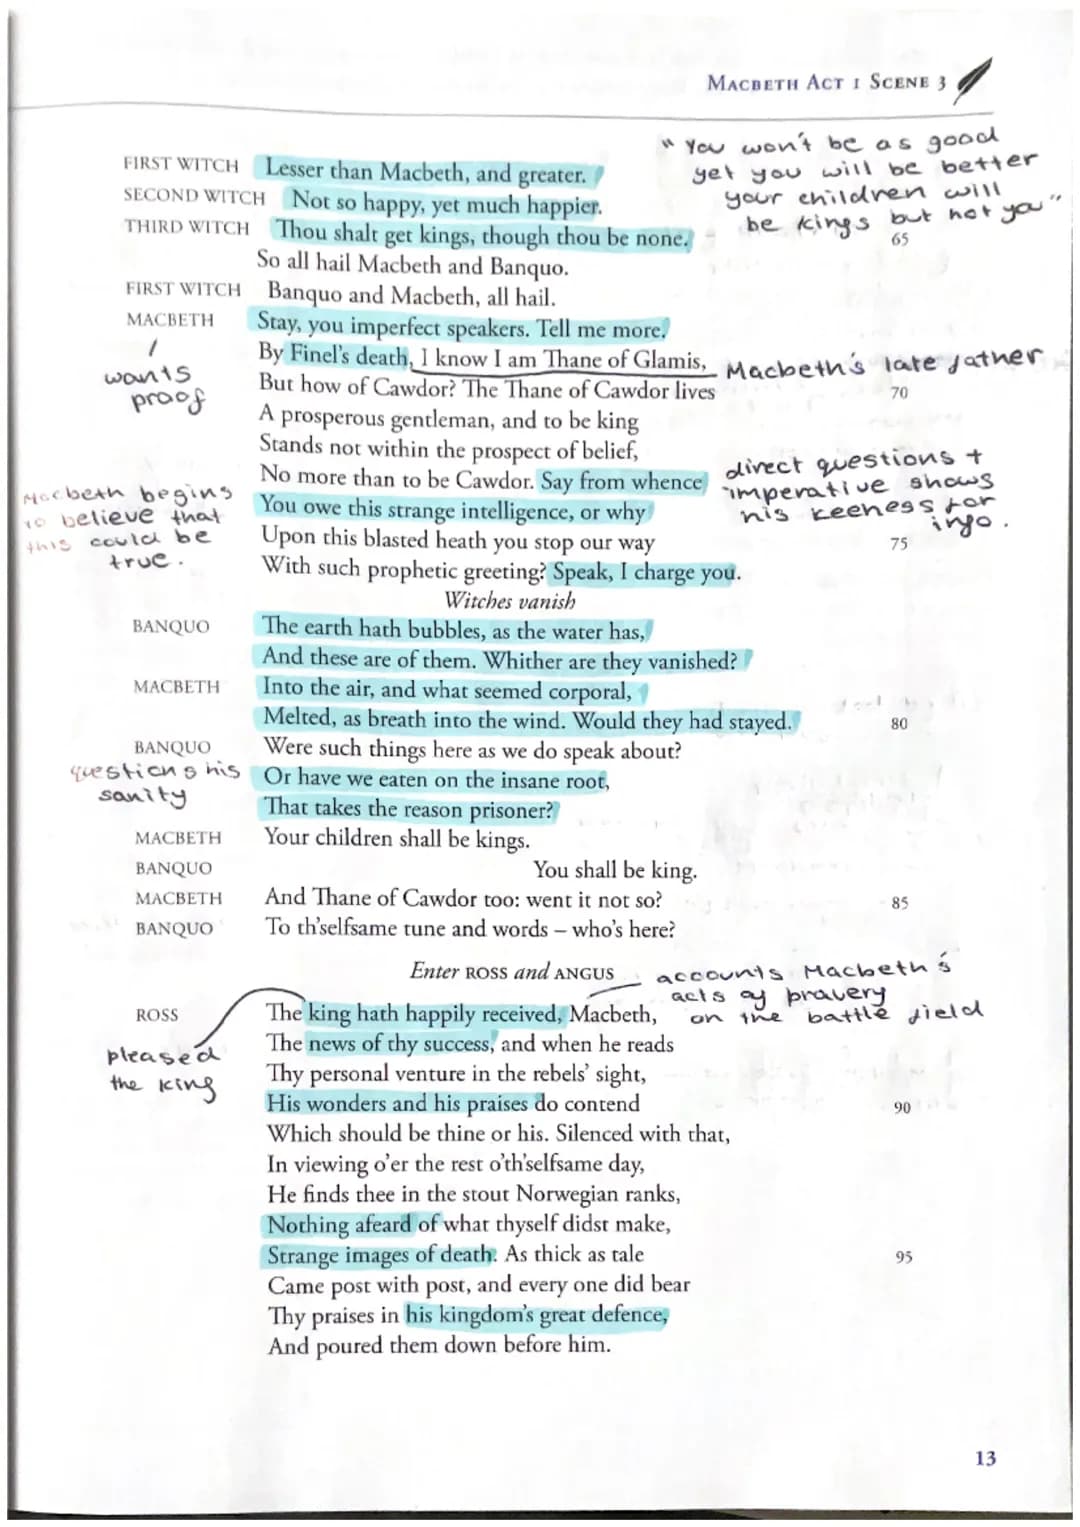 MACBETH ACT 1 SCENE 3
"You won't be as good
yet you will be better
your children will
be kings but not you"
FIRST WITCH Lesser than Macbeth, and greater.
SECOND WITCH Not so happy, yet much happier.
THIRD WITCH Thou shalt get kings, though thou be none. 65
So all hail Macbeth and Banquo.
FIRST WITCH Banquo and Macbeth, all hail.
MACBETH Stay, you imperfect speakers. Tell me more.
wants
proof
By Finel's death, I know I am Thane of Glamis, Macbeth's late father
But how of Cawdor? The Thane of Cawdor lives 70
A prosperous gentleman, and to be king
Stands not within the prospect of belief,
No more than to be Cawdor. Say from whence
direct questions +
imperative shows
his keeness for
info.
Macbeth begins
to believe that
this could be
true.
You owe this strange intelligence, or why
Upon this blasted heath you stop our way 75
With such prophetic greeting? Speak, I charge you.
Witches vanish
BANQUO The earth hath bubbles, as the water has,
And these are of them. Whither are they vanished?
MACBETH Into the air, and what seemed corporal,
Melted, as breath into the wind. Would they had stayed. 80
BANQUO Were such things here as we do speak about?
questions his
sanity
Or have we eaten on the insane root,
That takes the reason prisoner?
MACBETH Your children shall be kings.
BANQUO You shall be king.
MACBETH And Thane of Cawdor too: went it not so? 85
BANQUO To th'selfsame tune and words – who's here?
Enter ROSS and ANGUS
accounts Macbeth's
acts of bravery
on the battle field
ROSS The king hath happily received, Macbeth,
pleased
the king
The news of thy success, and when he reads
Thy personal venture in the rebels' sight,
His wonders and his praises do contend 90
Which should be thine or his. Silenced with that,
In viewing o'er the rest o'th'selfsame day,
He finds thee in the stout Norwegian ranks,
Nothing afeard of what thyself didst make,
Strange images of death. As thick as tale 95
Came post with post, and every one did bear
Thy praises in his kingdom's great defence,
And poured them down before him.
13